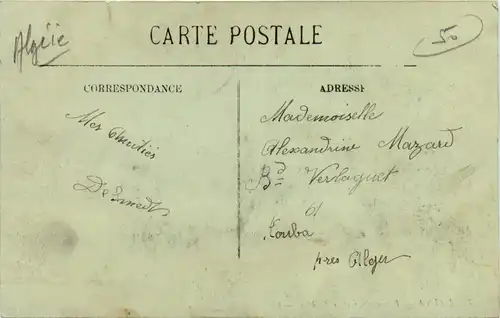 Algérie
CARTE POSTALE
50
CORRESPONDANCE
ADRESSE
Mes Amitiés
Mademoiselle
Alexandrine Mazard
Bd Verlaguet
à
Kouba
près Alger